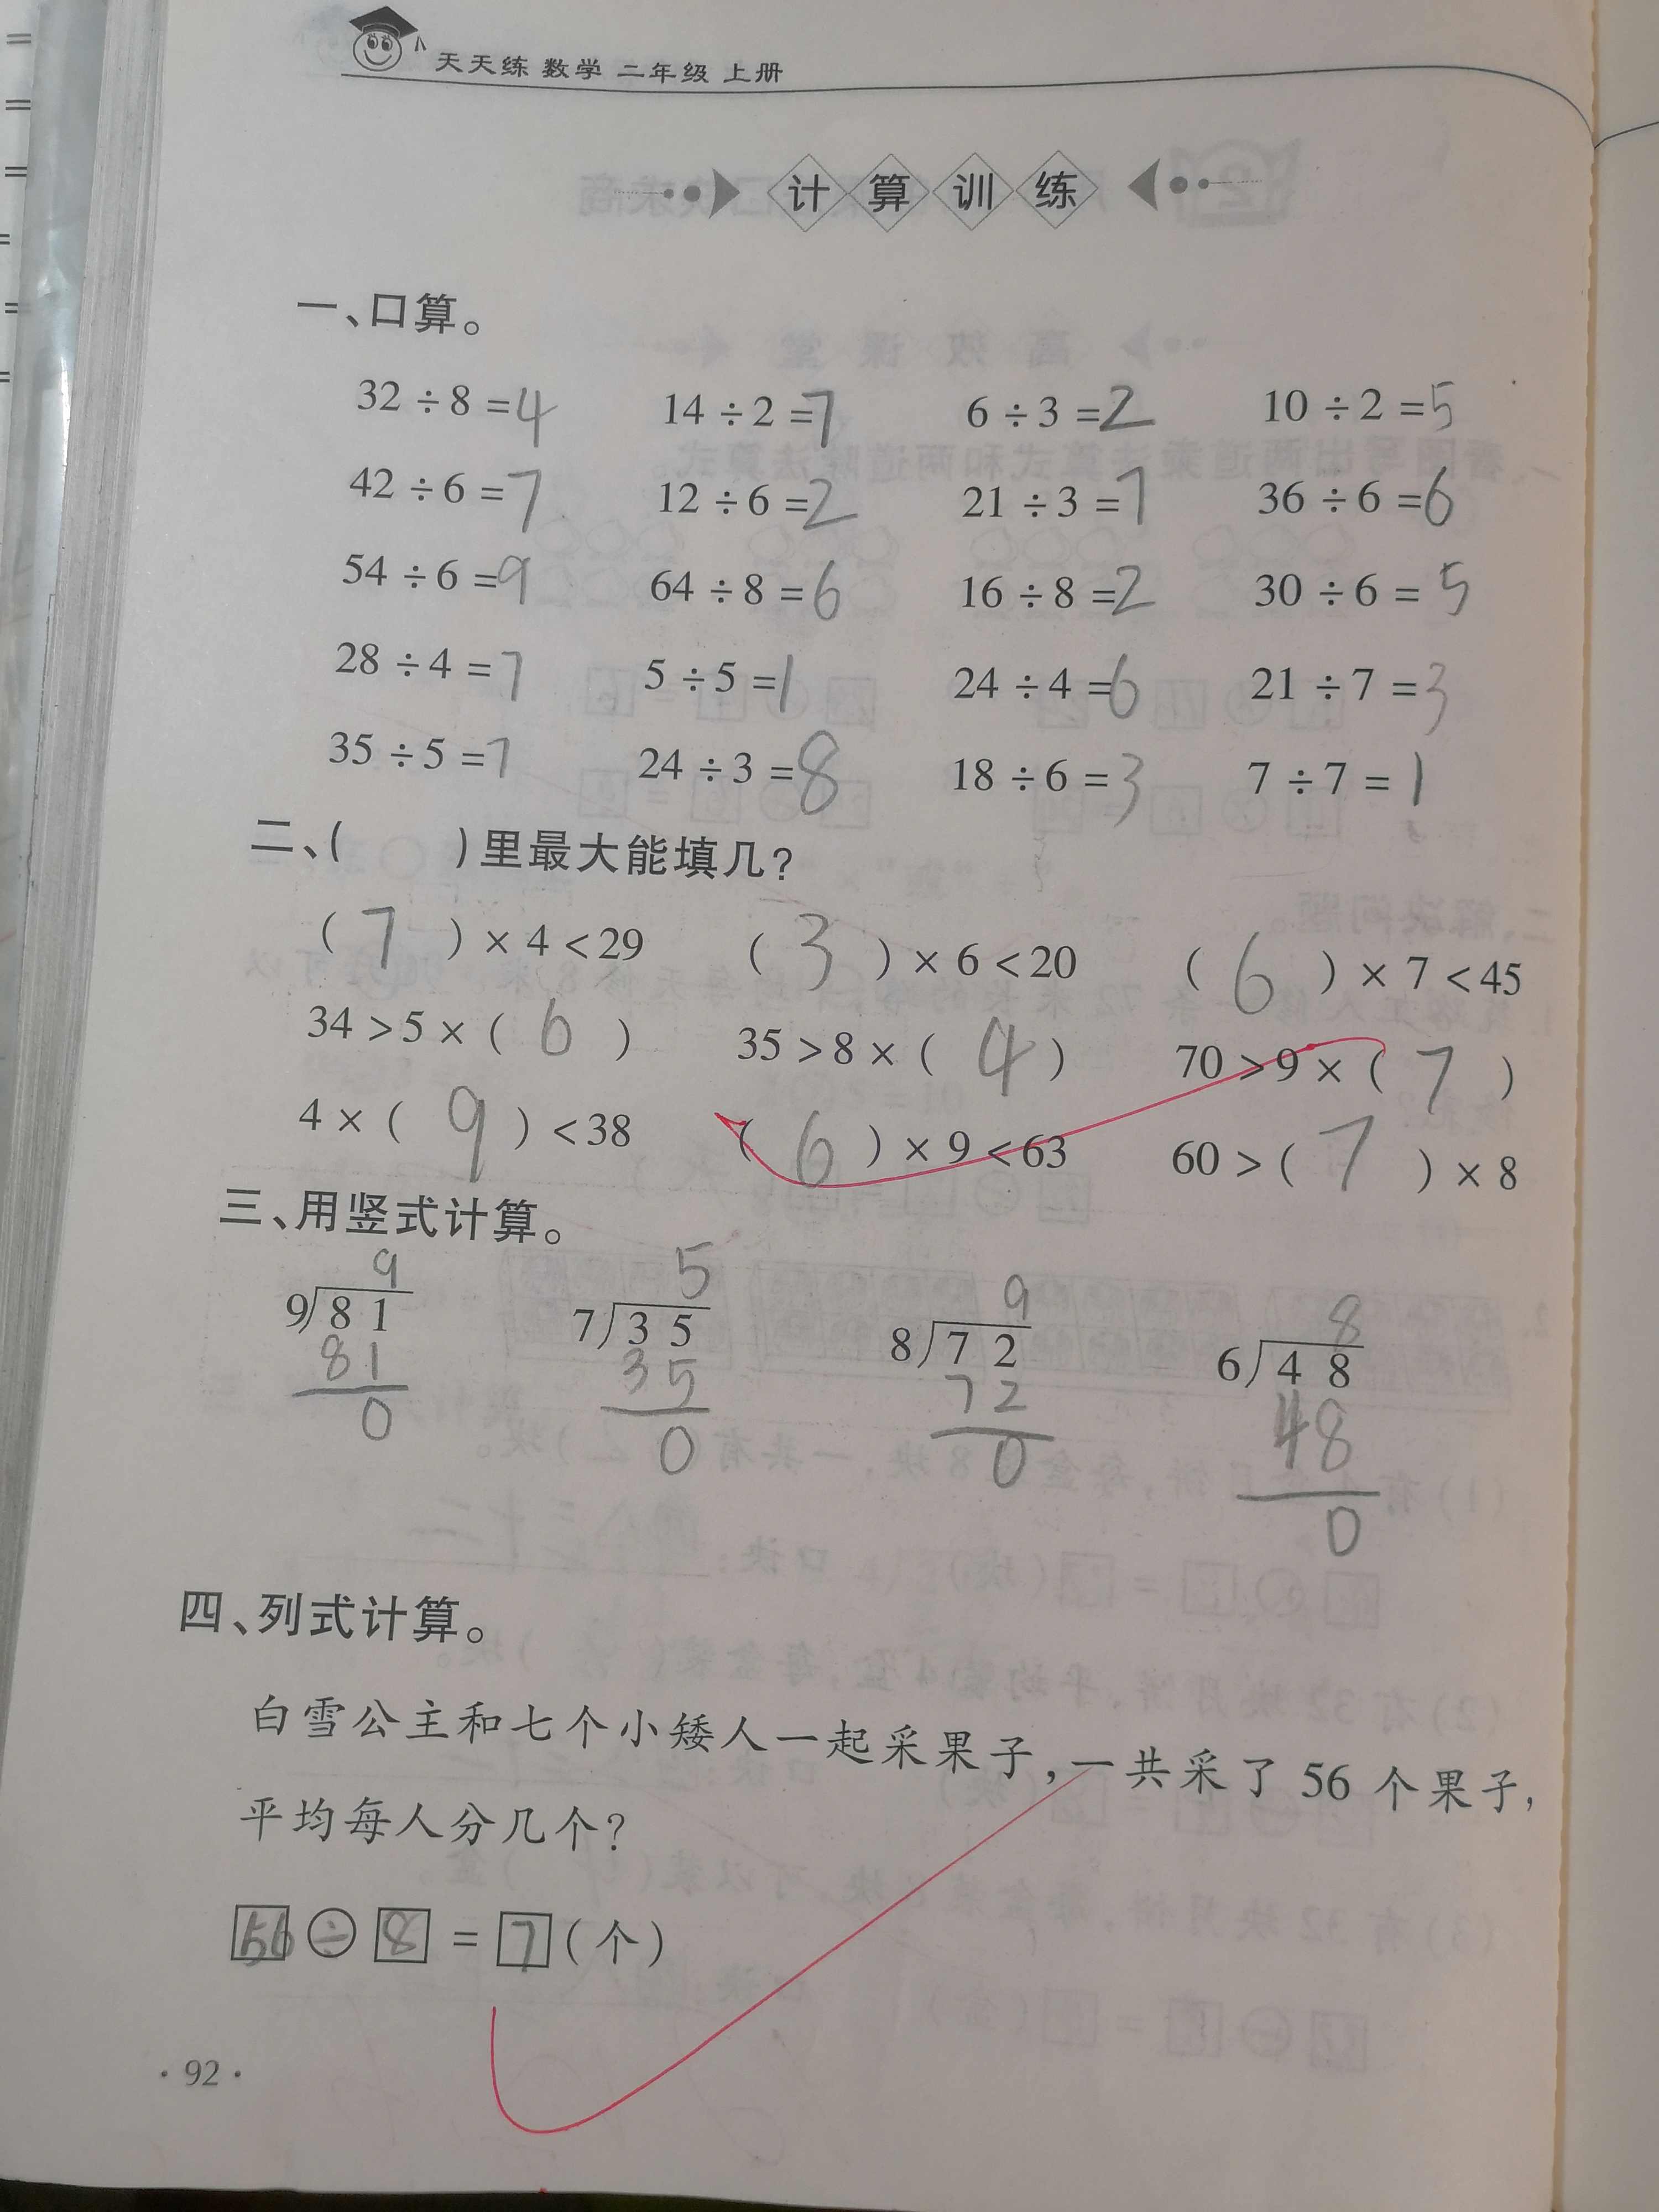 天天练 数学 二年级 上册
计算训练
一、口算。
32÷8=4 14÷2=7 6÷3=2 10÷2=5
42÷6=7 12÷6=2 21÷3=7 36÷6=6
54÷6=9 64÷8=6 16÷8=2 30÷6=5
28÷4=7 5÷5=1 24÷4=6 21÷7=3
35÷5=7 24÷3=8 18÷6=3 7÷7=1
二、( )里最大能填几?
(7)×4<29 (3)×6<20 (6)×7<45
34>5×(6) 35>8×(4) 70>9×(7)
4×(9)<38 (6)×9<63 60>(7)×8
三、用竖式计算。
9 5 9 8
9)81 7)35 8)72 6)48
81 35 72 48
0 0 0 0
四、列式计算。
白雪公主和七个小矮人一起采果子,一共采了 56 个果子,
平均每人分几个?
56÷8=7(个)
·92·